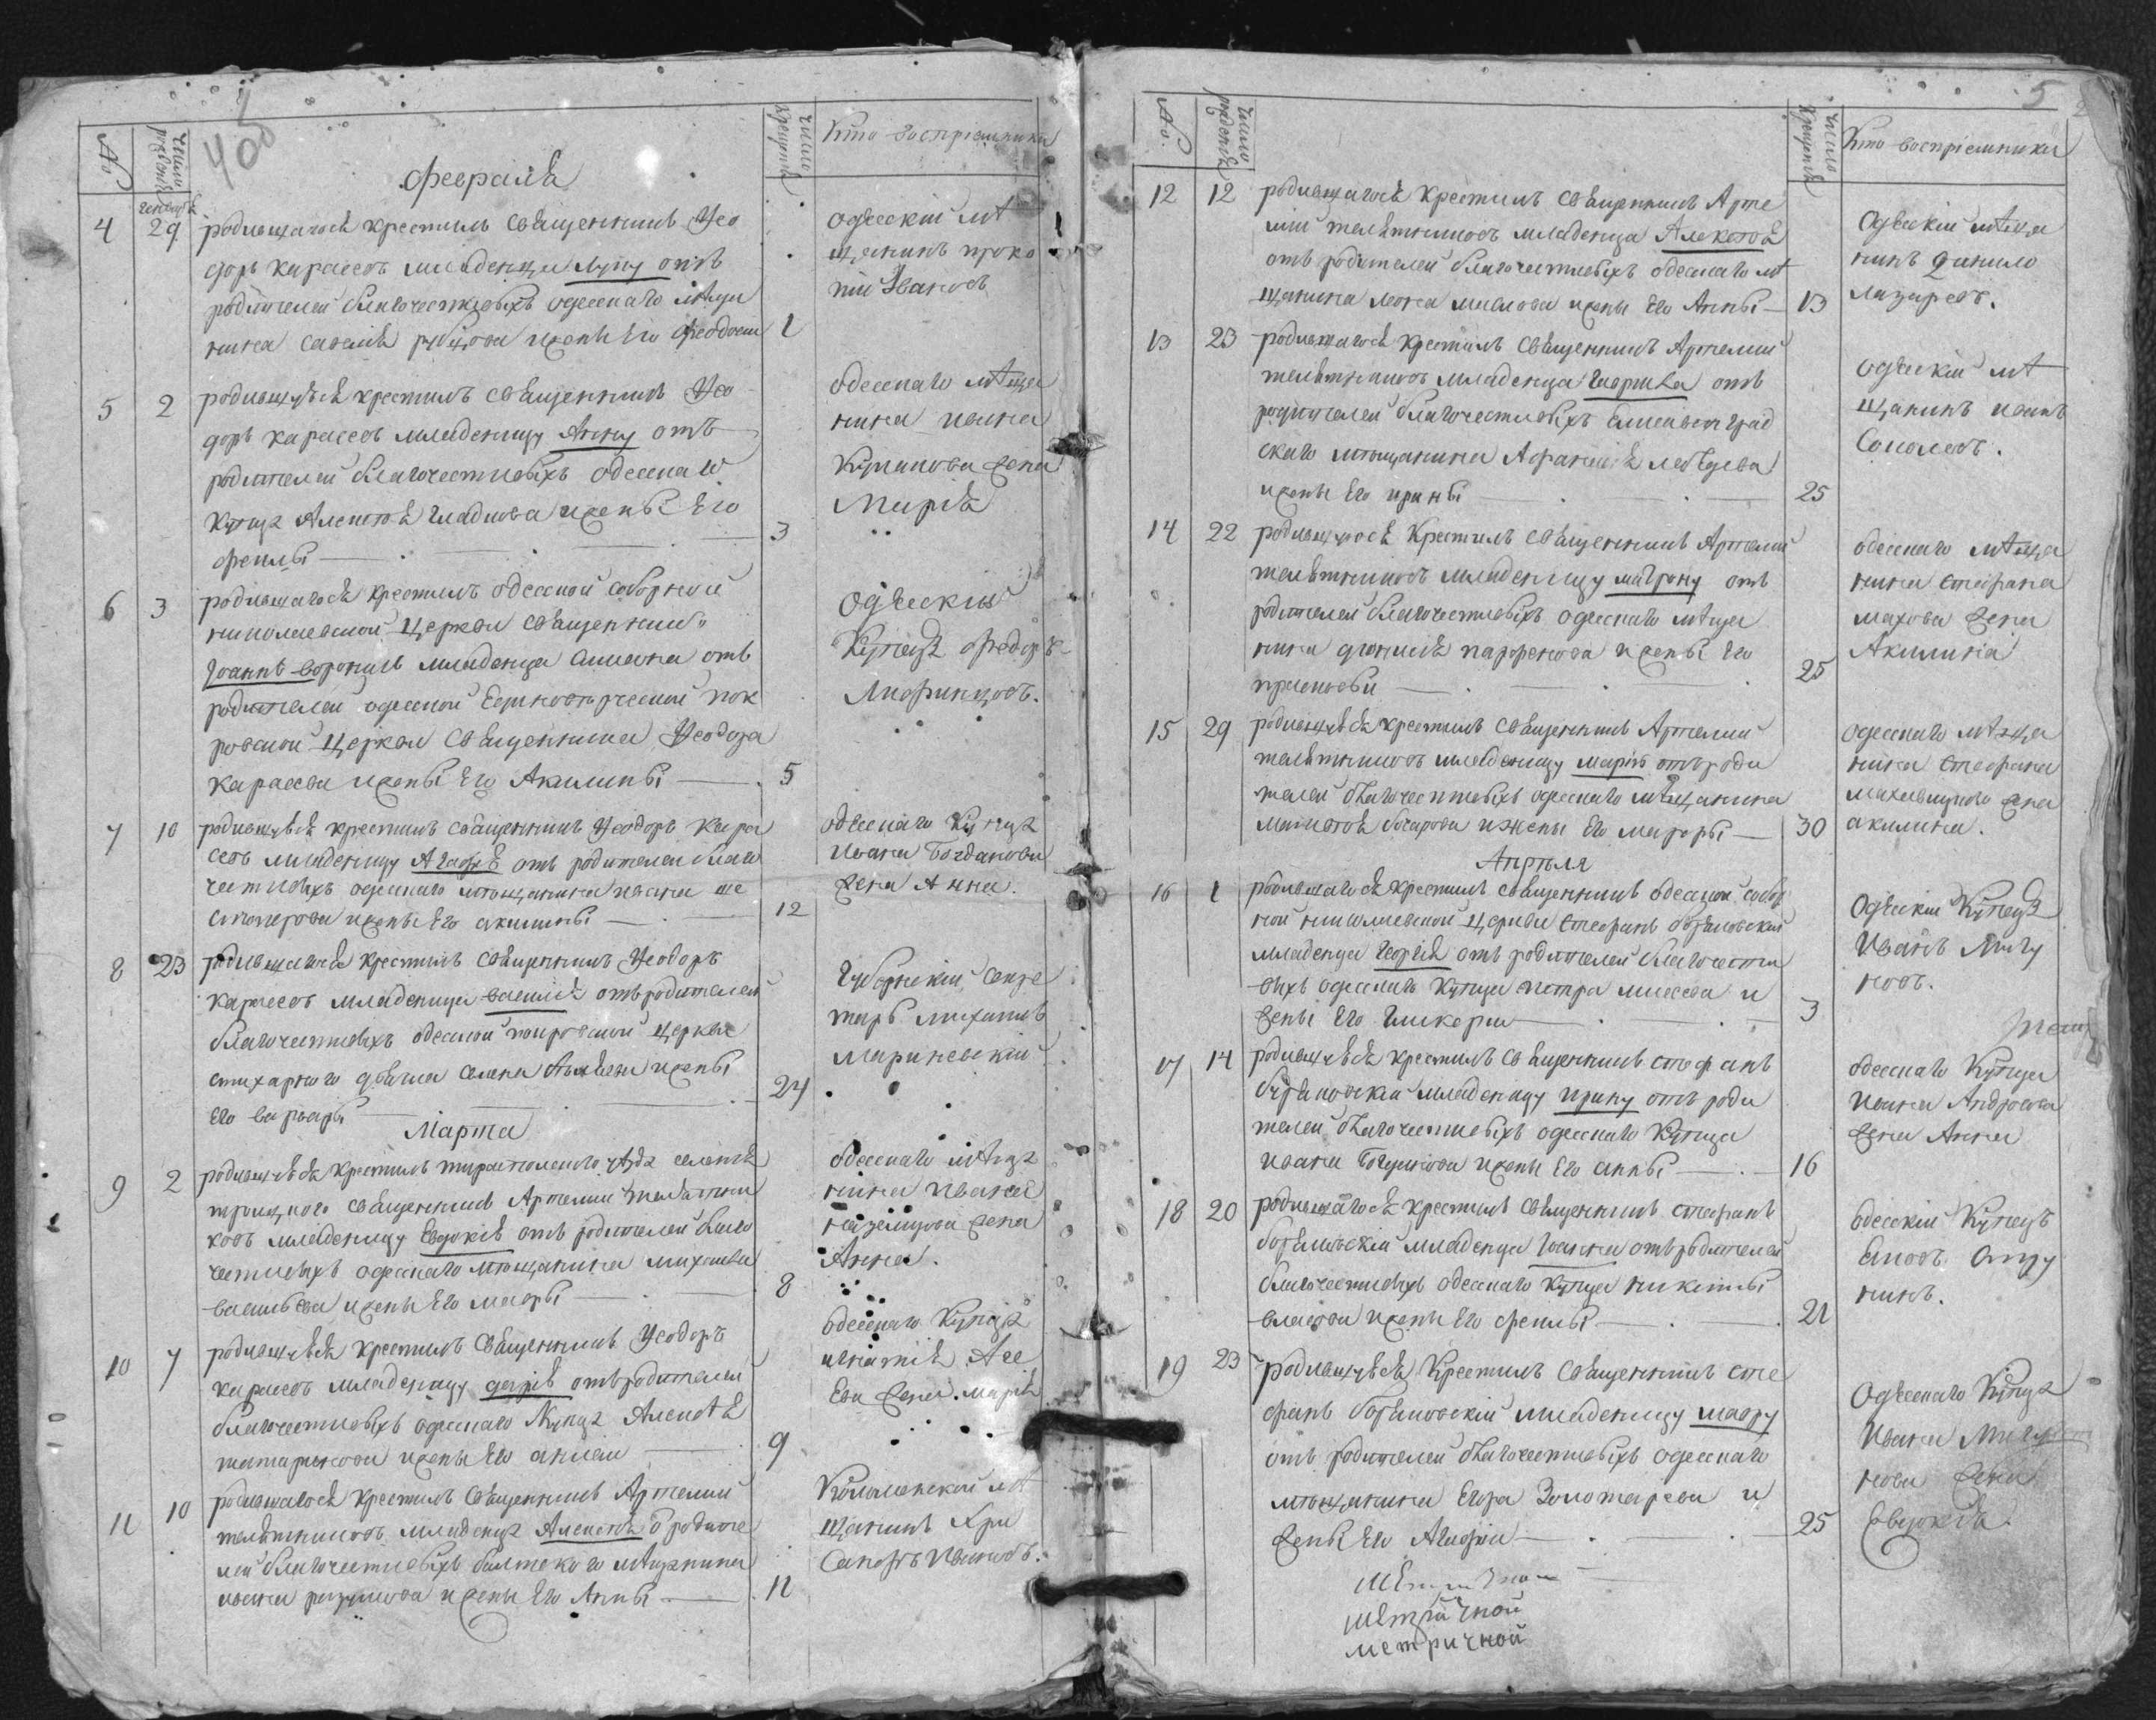 400
№
число рождені
Февраля
число крещенія
Кто воспріемники
4
Генваря
29
родившагося крестилъ священникъ Ѳео
доръ карасевъ младенца Луку отъ
родителей благочестивыхъ одесскаго мѣща
нина савелія рубцова и жены Его Феодосіи
1
одесскій мѣ
щанинъ проко
пій Ивановъ
5
2
родившуюся крестилъ священникъ Ѳео
доръ карасевъ младеницу Анну отъ
родителей благочестивыхъ одесскаго
купца Алексѣя гладкова и жены Его
феклы
3
одесскаго мѣща
нина ивана
Куликова жена
Марія
6
3
родившагося крестилъ одесской соборной
николаевской церкви священникъ
Іоаннъ вороничь младенца симеона отъ
родителей одесской Единовѣрческой пок
ровской церкви священника Ѳеодора
карасева и жены Его Акилины
5
одѣскій
Купецъ Федоръ
Лифинцовъ.
7
10
родившуюся крестилъ священникъ Ѳеодоръ кара
севъ младеницу Агафію отъ родителей благо
честивыхъ одесскаго мѣщанина ивана ше
стоперова и жены Его акилины
12
одесскаго Купца
ивана Богданова
жена Анна.
8
23
родившагося крестилъ священникъ Ѳеодоръ
карасевъ младенца василія отъ родителей
благочестивыхъ одесской покровской церкви
стихарного дьячка и жены
Его варвары
24
Губернскій секре
тарь михаилъ
Мариневскій
Марта
9
2
родившуюся крестилъ тираспольского уѣзда селенія
троицкого священникъ Артемій телятни
ковъ младеницу Евдокію отъ родителей благо
честивыхъ одесскаго мѣщанина михаила
васильева и жены Его мавры
8
одесскаго мѣща
нина ивана
жена
Анна.
10
7
родившуюся крестилъ священникъ Ѳеодоръ
карасевъ младеницу дарію отъ родителей
благочестивыхъ одесскаго Купца Алексѣя
татаринова и жены Его
9
одесскаго Купца
игнатія Але
Ева жена. марія
11
10
родившагося крестилъ священникъ Артемий
телятниковъ младенца Алексѣя о родите
лей благочестивыхъ балтского мѣщанина
ивана разумова и жены Его Анны
11
Коломенской мѣ
щанинъ Хри
санфъ Ивановъ.
5
№
число рожденія
число крещенія
Кто воспріемники
12
12
родившагося крестилъ священникъ Арте
мій телятниковъ младенца Алексѣя
отъ родителей благочестивыхъ одесскаго мѣ
щанина леона маслова и жены Его Анны
13
Одѣскій мѣща
нинъ данило
лазаревъ.
13
23
родившагося крестилъ священникъ Артемий
телятниковъ младенца отъ
родителей благочестивыхъ елисаветград
скаго мѣщанина Афанасія лебедева
и жены Его ирины
25
одѣскій мѣ
щанинъ иванъ
Соколовъ.
14
22
родившуюся Крестилъ священникъ Артемий
телятниковъ младеницу матрону отъ
родителей благочестивыхъ одесскаго мѣща
нина данила парфенова и жены Его
прасковьи
25
одесскаго мѣща
нина стефана
махова жена
Акилина
15
29
родившуюся крестилъ священникъ Артемий
телятниковъ младеницу марію отъ роди
телей благочестивыхъ одесскаго мѣщанина
матвѣя бочарова и жены Его мавры
30
одесскаго мѣща
нина стефана
жена
акилина.
Апрѣля
16
1
родившагося крестилъ священникъ одеской собор
ной николаевской церкви Стефанъ
младенца Георгія отъ родителей благочести
выхъ одесскаго купца петра и
жены Его гликерии
3
Одѣскій Купецъ
Иванъ Мигу
новъ.
17
14
родившуюся крестилъ священникъ стефанъ
младеницу ирину отъ роди
телей благочестивыхъ одесскаго Купца
ивана и жены Его анны
16
одесскаго Купца
ивана Андросова
жена Анна
18
20
родившагося крестилъ священникъ стефанъ
младенца Іоанна отъ родителей
благочестивыхъ одесскаго купца никиты
власова и жены Его феклы
21
одесскій Купецъ
19
23
родившуюся Крестилъ священникъ сте
фанъ младеницу мавру
отъ родителей благочестивыхъ одесскаго
мѣщанина Егора Золотарева и
жены Его Агафіи
25
Одѣсскаго Купца
Ивана Мигу
нова жена
Евдокія.
метричной
метричной